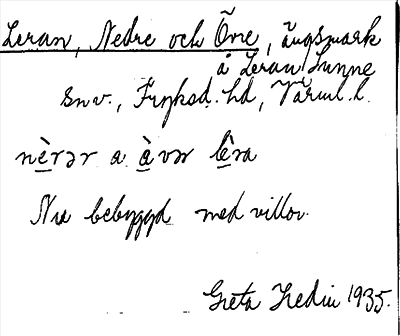 Leran, Nedre och Övre, ängsmark
å Leran i Sunne
snv., Fryksd. hd, Värml. l.
nèrər a àvər lèra
Nu bebyggd med villor.
Greta Hedin 1935.